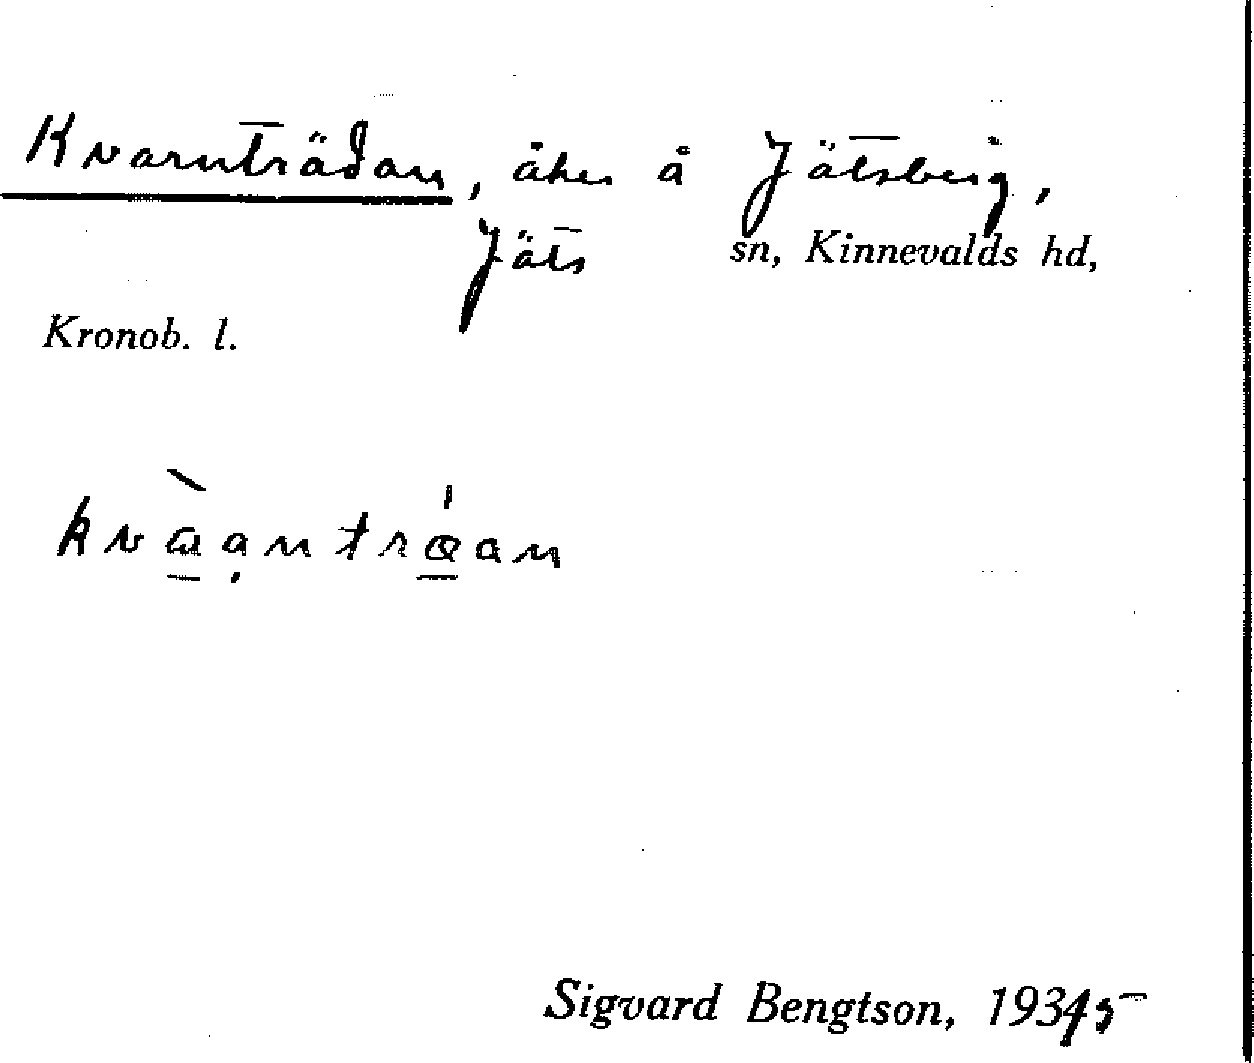 Kvarnträdan, åker å Jätsberg,
Jäts sn, Kinnevalds hd,
Kronob. l.
Sigvard Bengtson, 1935